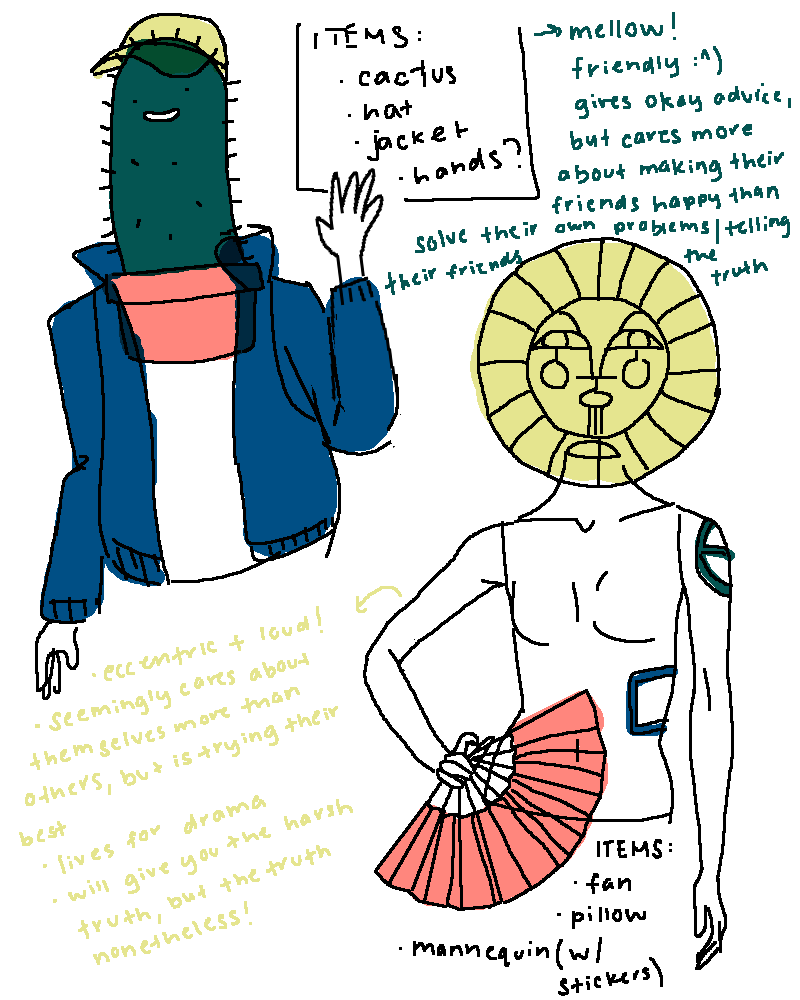 ITEMS:
· cactus
· hat
· jacket
· hands?
→ mellow!
friendly :^)
gives okay advice,
but cares more
about making their
friends happy than
solve their own problems/telling
their friends the
truth
· eccentric + loud!
· seemingly cares about
themselves more than
others, but is trying their
best
· lives for drama
· will give you the harsh
truth, but the truth
nonetheless!
ITEMS:
· fan
· pillow
· mannequin (w/
stickers)